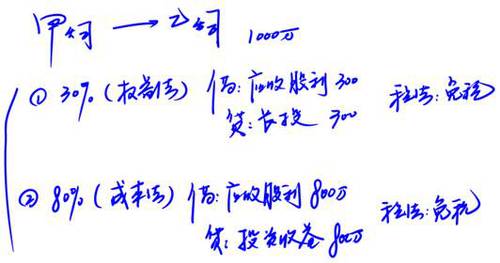 甲公司 → 乙公司 1000万
① 30% (权益法) 借: 应收股利 300 税法: 免税
贷: 长投 300
② 80% (成本法) 借: 应收股利 800万 税法: 免税
贷: 投资收益 800万